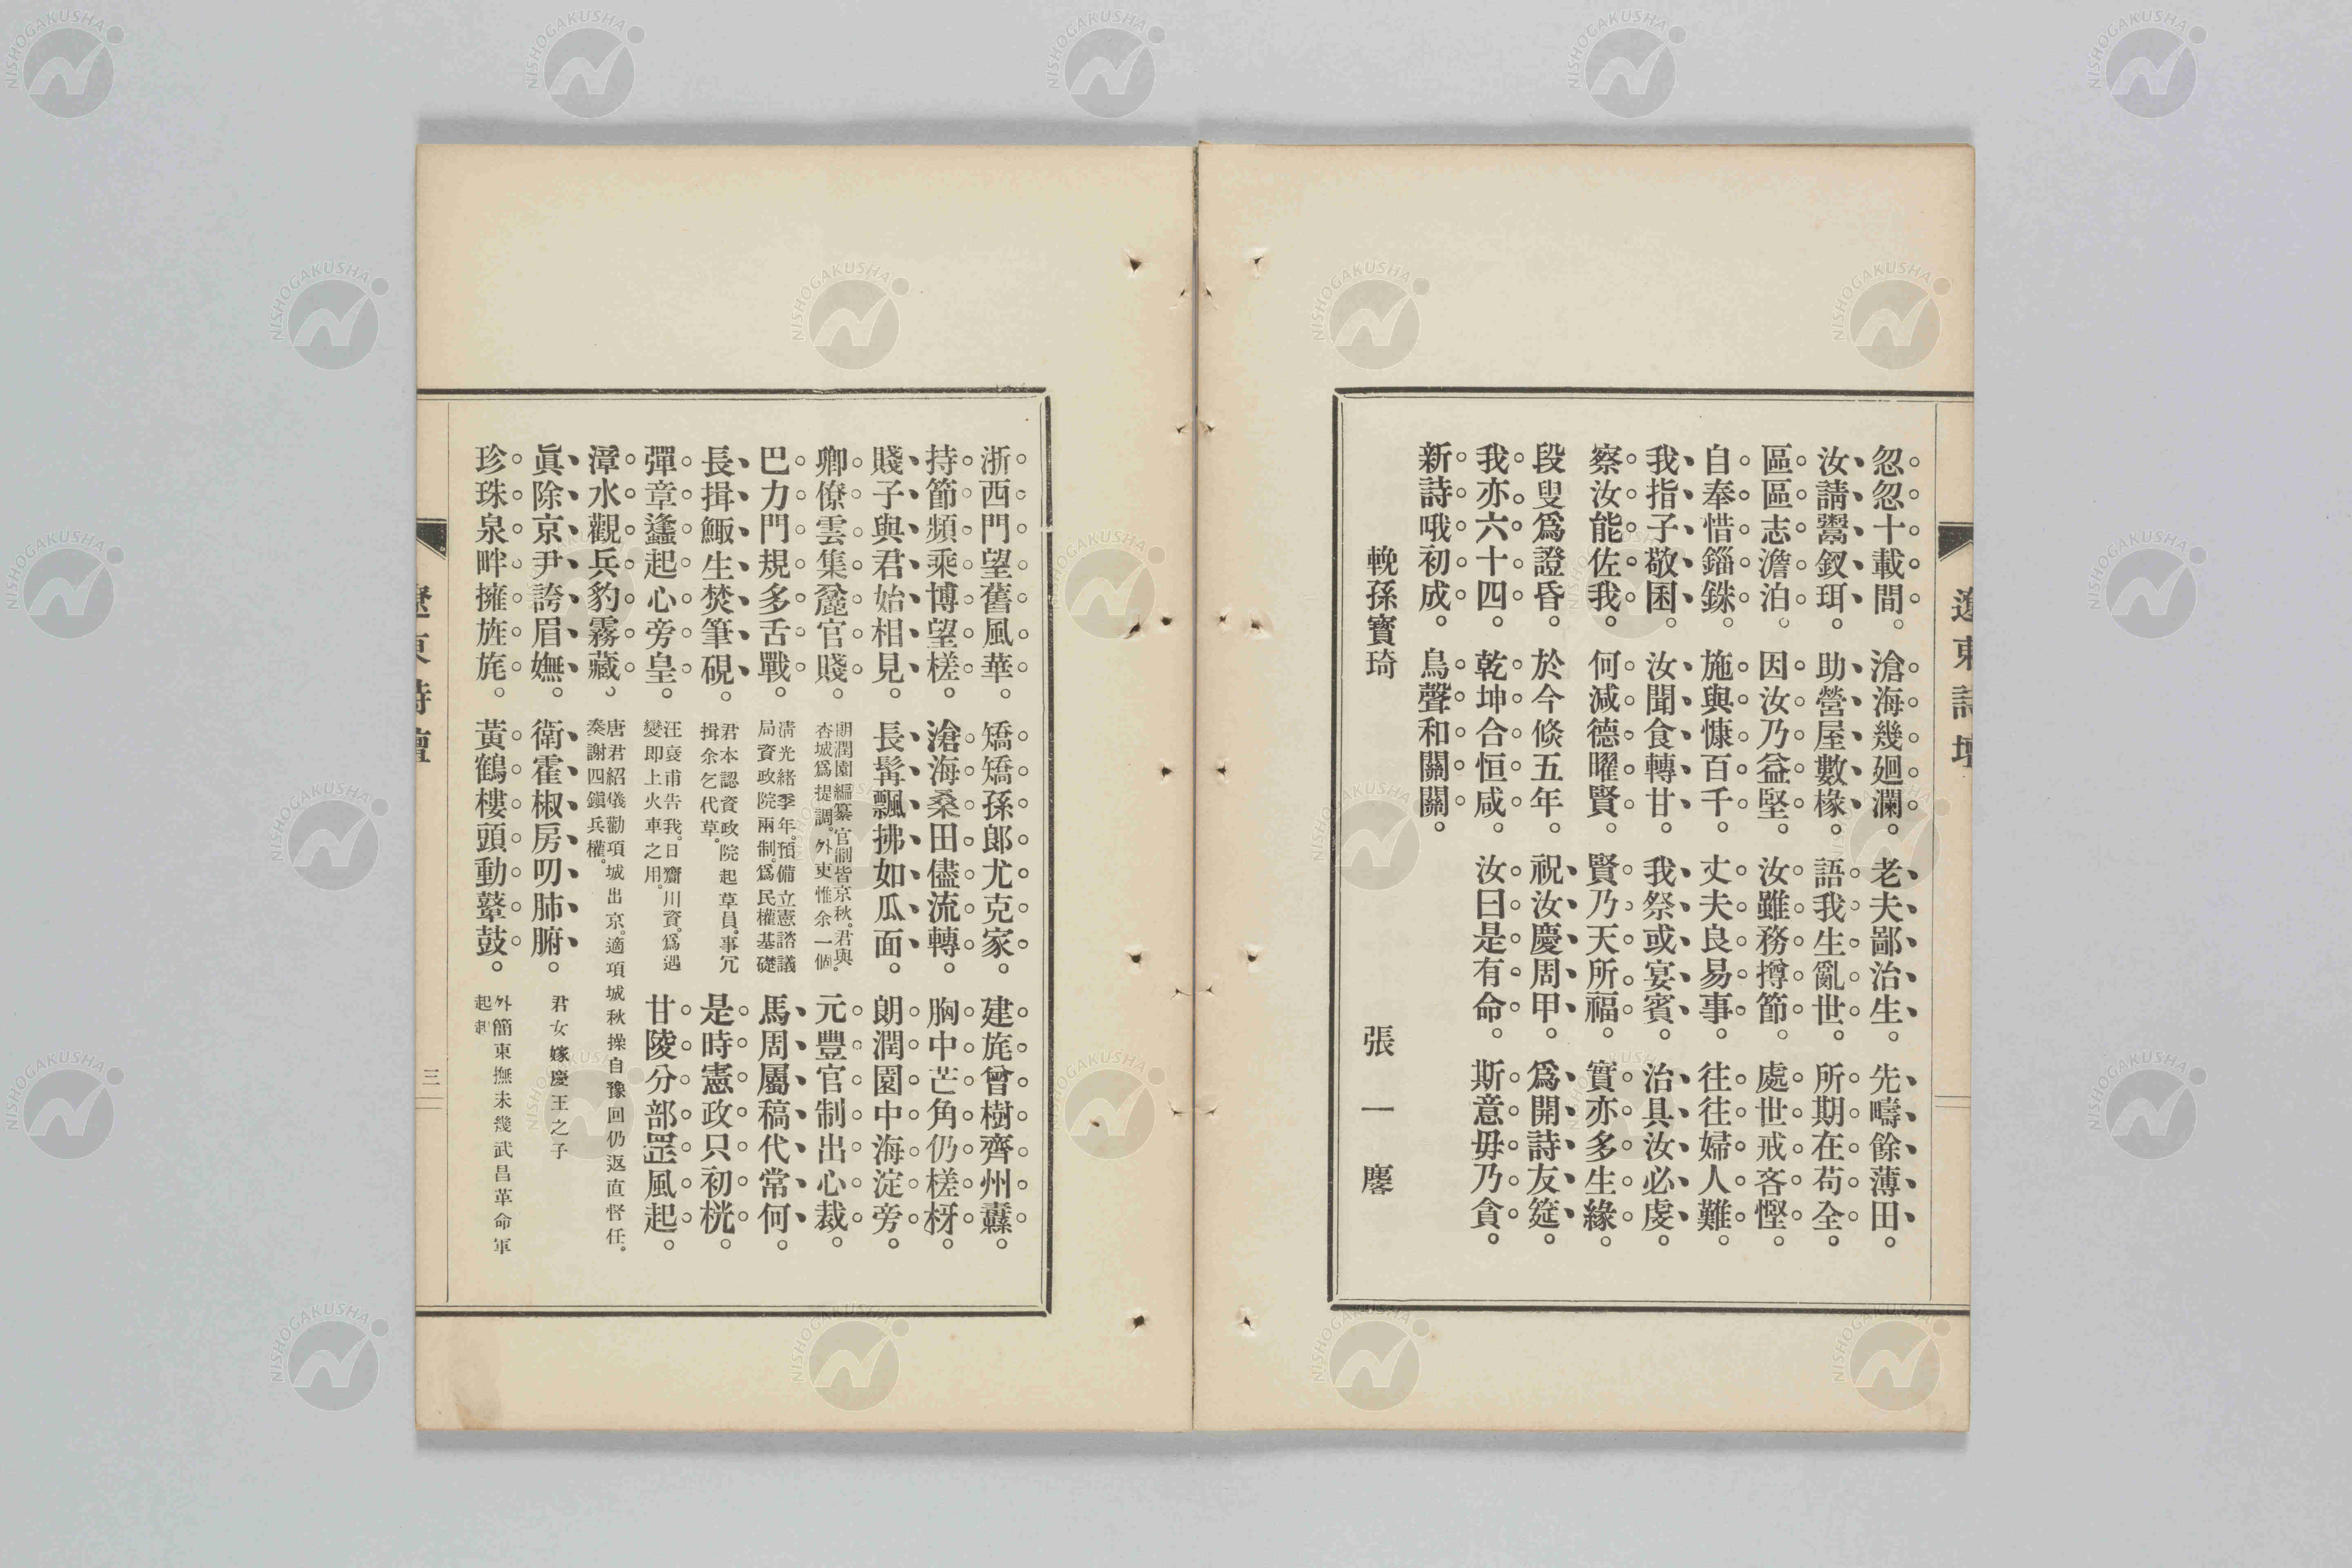 遼東詩壇
忽忽十載間。滄海幾廻瀾。老夫鄙治生。先疇餘薄田。
汝請鬻釵珥。助營屋數椽。語我生亂世。所期在苟全。
區區志澹泊。因汝乃益堅。汝雖務撙節。處世戒吝慳。
自奉惜錙銖。施與慷百千。丈夫良易事。往往婦人難。
我指子敬囷。汝聞食轉甘。我祭或宴賓。治具汝必虔。
察汝能佐我。何減德曜賢。賢乃天所福。實亦多生緣。
段叟爲證昏。於今倏五年。祝汝慶周甲。爲開詩友筵。
我亦六十四。乾坤合恒咸。汝曰是有命。斯意毋乃貪。
新詩哦初成。鳥聲和關關。
輓孫寶琦 張一麐
浙西門望舊風華。矯矯孫郎尤克家。建旄曾樹齊州纛。
持節頻乘博望槎。滄海桑田儘流轉。胸中芒角仍槎枒。
賤子與君始相見。長髯飄拂如瓜面。朗潤園中海淀旁。
卿僚雲集麄官賤。朗潤園編纂官制皆京秋。君與
杏城爲提調。外吏惟余一個。元豐官制出心裁。
巴力門規多舌戰。清光緒季年。預備立憲諮議
局資政院兩制。爲民權基礎 馬周屬稿代常何。
長揖鯫生焚筆硯。君本認資政院起草員。事冗
揖余乞代草。是時憲政只初桄。
彈章蠭起心旁皇。汪袞甫告我。日齎川資。爲遇
變即上火車之用。甘陵分部罡風起。
漳水觀兵豹霧藏。唐君紹儀勸項城出京。適項城秋操自豫回仍返直督任。
奏謝四鎭兵權。
眞除京尹誇眉嫵。衛霍椒房叨肺腑。君女嫁慶王之子
珍珠泉畔擁旌旄。黃鶴樓頭動鼙鼓。外簡東撫未幾武昌革命軍
起
遼東詩壇
三